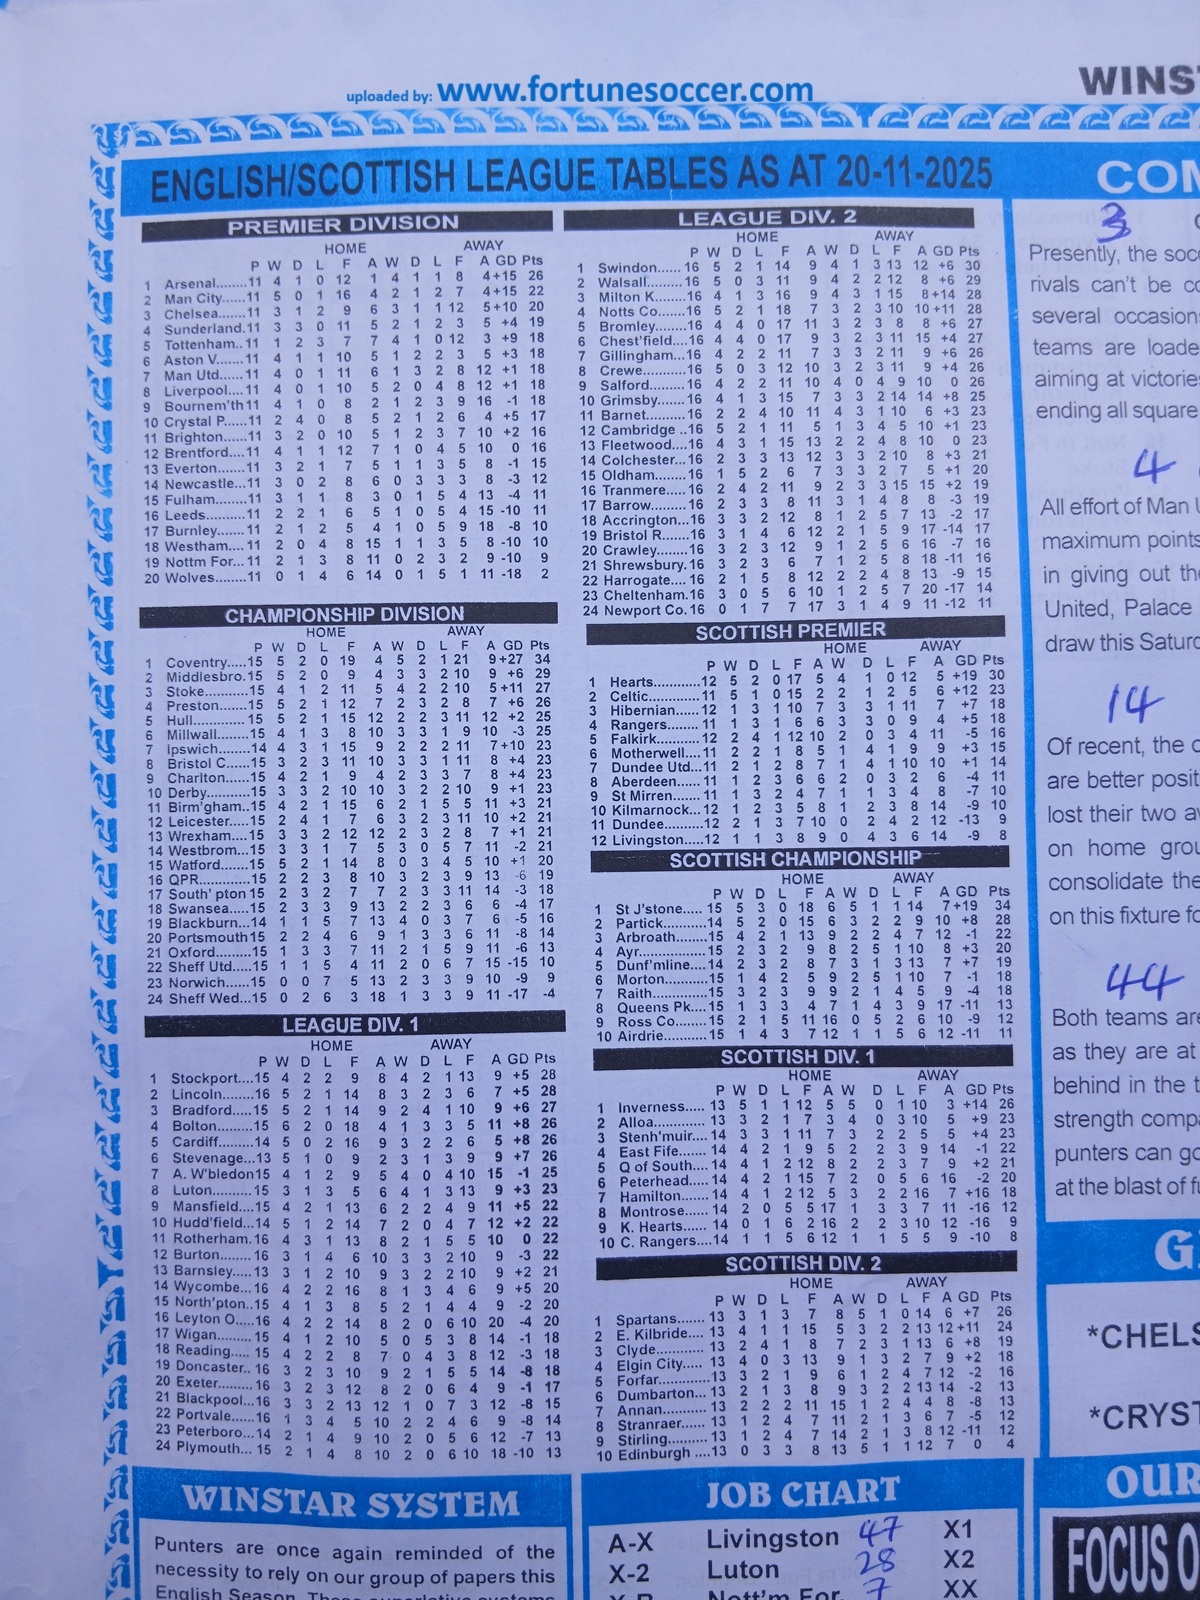 uploaded by: www.fortunesoccer.com
WINST
ENGLISH/SCOTTISH LEAGUE TABLES AS AT 20-11-2025
PREMIER DIVISION
HOME AWAY
P W D L F A W D L F A GD Pts
1 Arsenal.......11 4 1 0 12 1 4 1 1 8 4+15 26
2 Man City......11 5 0 1 16 4 2 1 2 7 4+15 22
3 Chelsea.......11 3 1 2 9 6 3 1 1 12 5+10 20
4 Sunderland.11 3 3 0 11 5 2 1 2 3 5 +4 19
5 Tottenham..11 1 2 3 7 7 4 1 0 12 3 +9 18
6 Aston V.......11 4 1 1 10 5 1 2 2 3 5 +3 18
7 Man Utd......11 4 0 1 11 6 1 3 2 8 12 +1 18
8 Liverpool....11 4 0 1 10 5 2 0 4 8 12 +1 18
9 Bournem'th11 4 1 0 8 2 1 2 3 9 16 -1 18
10 Crystal P...11 2 4 0 8 5 2 1 2 6 4 +5 17
11 Brighton.....11 3 2 0 10 5 1 2 3 7 10 +2 16
12 Brentford....11 4 1 1 12 7 1 0 4 5 10 0 16
13 Everton......11 3 2 1 7 5 1 1 3 5 8 -1 15
14 Newcastle...11 3 0 2 8 6 0 3 3 3 8 -3 12
15 Fulham.......11 3 1 1 8 3 0 1 5 4 13 -4 11
16 Leeds.........11 2 2 1 6 5 1 0 5 4 15 -10 11
17 Burnley......11 2 1 2 5 4 1 0 5 9 18 -8 10
18 Westham....11 2 0 4 8 15 1 1 3 5 8 -10 10
19 Nottm For...11 2 1 3 8 11 0 2 3 2 9 -10 9
20 Wolves.......11 0 1 4 6 14 0 1 5 1 11 -18 2
CHAMPIONSHIP DIVISION
HOME AWAY
P W D L F A W D L F A GD Pts
1 Coventry.....15 5 2 0 19 4 5 2 1 21 9+27 34
2 Middlesbro.15 5 2 0 9 4 3 3 2 10 9 +6 29
3 Stoke...........15 4 1 2 11 5 4 2 2 10 5+11 27
4 Preston.......15 5 2 1 12 7 2 3 2 8 7 +6 26
5 Hull............15 5 2 1 15 12 2 2 3 11 12 +2 25
6 Millwall......15 4 1 3 8 10 3 3 1 9 10 -3 25
7 Ipswich.......14 4 3 1 15 9 2 2 2 11 7+10 23
8 Bristol C.....15 3 2 3 11 10 3 3 1 11 8 +4 23
9 Charlton......15 4 2 1 9 4 2 3 3 7 8 +4 23
10 Derby.........15 3 3 2 10 10 3 2 2 10 9 +1 23
11 Birm'gham..15 4 2 1 15 6 2 1 5 5 11 +3 21
12 Leicester....15 2 4 1 7 6 3 2 3 11 10 +2 21
13 Wrexham....15 3 3 2 12 12 2 3 2 8 7 +1 21
14 Westbrom...15 3 3 1 7 5 3 0 5 7 11 -2 21
15 Watford......15 5 2 1 14 8 0 3 4 5 10 +1 20
16 QPR............15 2 2 3 8 10 3 2 3 9 13 -6 19
17 South' pton 15 2 3 2 7 7 2 3 3 11 14 -3 18
18 Swansea....15 2 3 3 9 13 2 2 3 6 6 -4 17
19 Blackburn...14 1 1 5 7 13 4 0 3 7 6 -5 16
20 Portsmouth15 2 2 4 6 9 1 3 3 6 11 -8 14
21 Oxford........15 1 3 3 7 11 2 1 5 9 11 -6 13
22 Sheff Utd....15 1 1 5 4 11 2 0 6 7 15 -15 10
23 Norwich.....15 0 0 7 5 13 2 3 3 9 10 -9 9
24 Sheff Wed...15 0 2 6 3 18 1 3 3 9 11 -17 -4
LEAGUE DIV. 1
HOME AWAY
P W D L F A W D L F A GD Pts
1 Stockport....15 4 2 2 9 8 4 2 1 13 9 +5 28
2 Lincoln.......16 5 2 1 14 8 3 2 3 6 7 +5 28
3 Bradford.....15 5 2 1 14 9 2 4 1 10 9 +6 27
4 Bolton........15 6 2 0 18 4 1 3 3 5 11 +8 26
5 Cardiff........14 5 0 2 16 9 3 2 2 6 5 +8 26
6 Stevenage...13 5 1 0 9 2 3 1 3 9 9 +7 26
7 A. W'bledon15 4 1 2 9 5 4 0 4 10 15 -1 25
8 Luton.........15 3 1 3 5 6 4 1 3 13 9 +3 23
9 Mansfield....15 4 2 1 13 6 2 2 4 9 11 +5 22
10 Hudd'field...14 5 1 2 14 7 2 0 4 7 12 +2 22
11 Rotherham.16 4 3 1 13 8 2 1 5 5 10 0 22
12 Burton........16 3 1 4 6 10 3 3 2 10 9 -3 22
13 Barnsley.....13 3 1 2 10 9 3 2 2 10 9 +2 21
14 Wycombe...16 4 2 2 16 8 1 3 4 6 9 +5 20
15 North'pton..15 4 1 3 8 5 2 1 4 4 9 -2 20
16 Leyton O.....16 4 2 2 14 8 2 0 6 10 20 -4 20
17 Wigan.........15 4 1 2 10 5 0 5 3 8 14 -1 18
18 Reading.....15 4 2 2 8 7 0 4 3 8 12 -3 18
19 Doncaster..16 3 2 3 10 9 2 1 5 5 14 -8 18
20 Exeter.........16 3 2 3 12 8 2 0 6 4 9 -1 17
21 Blackpool...16 3 3 2 13 12 1 0 7 3 12 -8 15
22 Portvale.....16 1 3 4 5 10 2 2 4 6 9 -8 14
23 Peterboro...14 2 1 4 9 10 2 0 5 6 12 -7 13
24 Plymouth... 15 2 1 4 8 10 2 0 6 10 18 -10 13
LEAGUE DIV. 2
HOME AWAY
P W D L F A W D L F A GD Pts
1 Swindon...... 16 5 2 1 14 9 4 1 3 13 12 +6 30
2 Walsall........16 5 0 3 11 9 4 2 2 12 8 +6 29
3 Milton K......16 4 1 3 16 9 4 3 1 15 8+14 28
4 Notts Co.....16 5 2 1 18 7 3 2 3 10 10+11 28
5 Bromley......16 4 4 0 17 11 3 2 3 8 8 +6 27
6 Chest'field..16 4 4 0 17 9 3 2 3 11 15 +4 27
7 Gillingham..16 4 2 2 11 7 3 3 2 11 9 +6 26
8 Crewe.........16 5 0 3 12 10 3 2 3 11 9 +4 26
9 Salford........16 4 2 2 11 10 4 0 4 9 10 0 26
10 Grimsby.....16 4 1 3 15 7 3 3 2 14 14 +8 25
11 Barnet........16 2 2 4 10 11 4 3 1 10 6 +3 23
12 Cambridge ..16 5 2 1 11 5 1 3 4 5 10 +1 23
13 Fleetwood...16 4 3 1 15 13 2 2 4 8 10 0 23
14 Colchester...16 2 3 3 13 12 3 3 2 10 8 +3 21
15 Oldham......16 1 5 2 6 7 3 3 2 7 5 +1 20
16 Tranmere....16 2 4 2 11 9 2 3 3 15 15 +2 19
17 Barrow.......16 2 3 3 8 11 3 1 4 8 8 -3 19
18 Accrington...16 3 3 2 12 8 1 2 5 7 13 -2 17
19 Bristol R.....16 3 1 4 6 12 2 1 5 9 17 -14 17
20 Crawley......16 3 2 3 12 9 1 2 5 6 16 -7 16
21 Shrewsbury.16 3 2 3 6 7 1 2 5 8 18 -11 16
22 Harrogate....16 2 1 5 8 12 2 2 4 8 13 -9 15
23 Cheltenham.16 3 0 5 6 10 1 2 5 7 20 -17 14
24 Newport Co.16 0 1 7 7 17 3 1 4 9 11 -12 11
SCOTTISH PREMIER
HOME AWAY
P W D L F A W D L F A GD Pts
1 Hearts...........12 5 2 0 17 5 4 1 0 12 5 +19 30
2 Celtic............11 5 1 0 15 2 2 1 2 5 6 +12 23
3 Hibernian......12 1 3 1 10 7 3 3 1 11 7 +7 18
4 Rangers........11 1 3 1 6 6 3 3 0 9 4 +5 18
5 Falkirk..........12 2 4 1 12 10 2 0 3 4 11 -5 16
6 Motherwell...11 2 2 1 8 5 1 4 1 9 9 +3 15
7 Dundee Utd...11 2 1 2 8 7 1 4 1 10 10 +1 14
8 Aberdeen.....11 1 2 3 6 6 2 0 3 2 6 -4 11
9 St Mirren......11 1 3 2 4 7 1 1 3 4 8 -7 10
10 Kilmarnock...12 1 2 3 5 8 1 2 3 8 14 -9 10
11 Dundee.........12 2 1 3 7 10 0 2 4 2 12 -13 9
12 Livingston....12 1 1 3 8 9 0 4 3 6 14 -9 8
SCOTTISH CHAMPIONSHIP
HOME AWAY
P W D L F A W D L F A GD Pts
1 St J'stone..... 15 5 3 0 18 6 5 1 1 14 7+19 34
2 Partick..........14 5 2 0 15 6 3 2 2 9 10 +8 28
3 Arbroath.......15 4 2 1 13 9 2 2 4 7 12 -1 22
4 Ayr...............15 2 3 2 9 8 2 5 1 10 8 +3 20
5 Dunf'mline....14 2 3 2 8 7 3 1 3 13 7 +7 19
6 Morton.........15 1 4 2 5 9 2 5 1 10 7 -1 18
7 Raith............15 3 2 3 9 9 2 1 4 5 9 -4 18
8 Queens Pk....15 1 3 3 4 7 1 4 3 9 17 -11 13
9 Ross Co........15 2 1 5 11 16 0 5 2 6 10 -9 12
10 Airdrie..........15 1 4 3 7 12 1 1 5 6 12 -11 11
SCOTTISH DIV. 1
HOME AWAY
P W D L F A W D L F A GD Pts
1 Inverness..... 13 5 1 1 12 5 5 0 1 10 3 +14 26
2 Alloa.............13 3 2 1 7 3 4 0 3 10 5 +9 23
3 Stenh'muir....14 3 3 1 11 7 3 2 2 5 5 +4 23
4 East Fife.......14 4 2 1 9 5 2 2 3 9 14 -1 22
5 Q of South....14 4 1 2 12 8 2 2 3 7 9 +2 21
6 Peterhead.....14 4 2 1 15 7 2 0 5 6 16 -2 20
7 Hamilton.......14 4 1 2 12 5 3 2 2 16 7 +16 18
8 Montrose......14 2 0 5 5 17 1 3 3 7 11 -16 12
9 K. Hearts......14 0 1 6 2 16 2 2 3 10 12 -16 9
10 C. Rangers....14 1 1 5 6 12 1 1 5 5 9 -10 8
SCOTTISH DIV. 2
HOME AWAY
P W D L F A W D L F A GD Pts
1 Spartans.......13 3 1 3 7 8 5 1 0 14 6 +7 26
2 E. Kilbride.....13 4 1 1 15 5 3 2 2 13 12 +11 24
3 Clyde............13 2 4 1 8 7 2 3 1 13 6 +8 19
4 Elgin City......13 4 0 3 13 9 1 3 2 7 9 +2 18
5 Forfar............13 3 2 1 9 6 1 2 4 7 12 -2 16
6 Dumbarton....13 2 1 3 8 9 3 2 2 13 14 -2 13
7 Annan..........13 2 2 2 11 15 1 2 4 4 8 -8 13
8 Stranraer.......13 1 2 4 7 11 2 1 3 6 7 -5 12
9 Stirling..........13 1 2 4 7 14 2 1 3 8 12 -11 12
10 Edinburgh ....13 0 3 3 8 13 5 1 1 12 7 0 4
WINSTAR SYSTEM
Punters are once again reminded of the
necessity to rely on our group of papers this
English Season. These superlative systems
JOB CHART
A-X Livingston 47 X1
X-2 Luton 28 X2
Nott'm For. 7 XX
COM
3
Presently, the socc
rivals can't be co
several occasion
teams are loade
aiming at victories
ending all square
4
All effort of Man U
maximum points
in giving out the
United, Palace
draw this Saturd
14
Of recent, the c
are better positi
lost their two av
on home grou
consolidate the
on this fixture fo
44
Both teams are
as they are at
behind in the t
strength compa
punters can go
at the blast of fu
*CHELS
*CRYST
OUR
FOCUS O